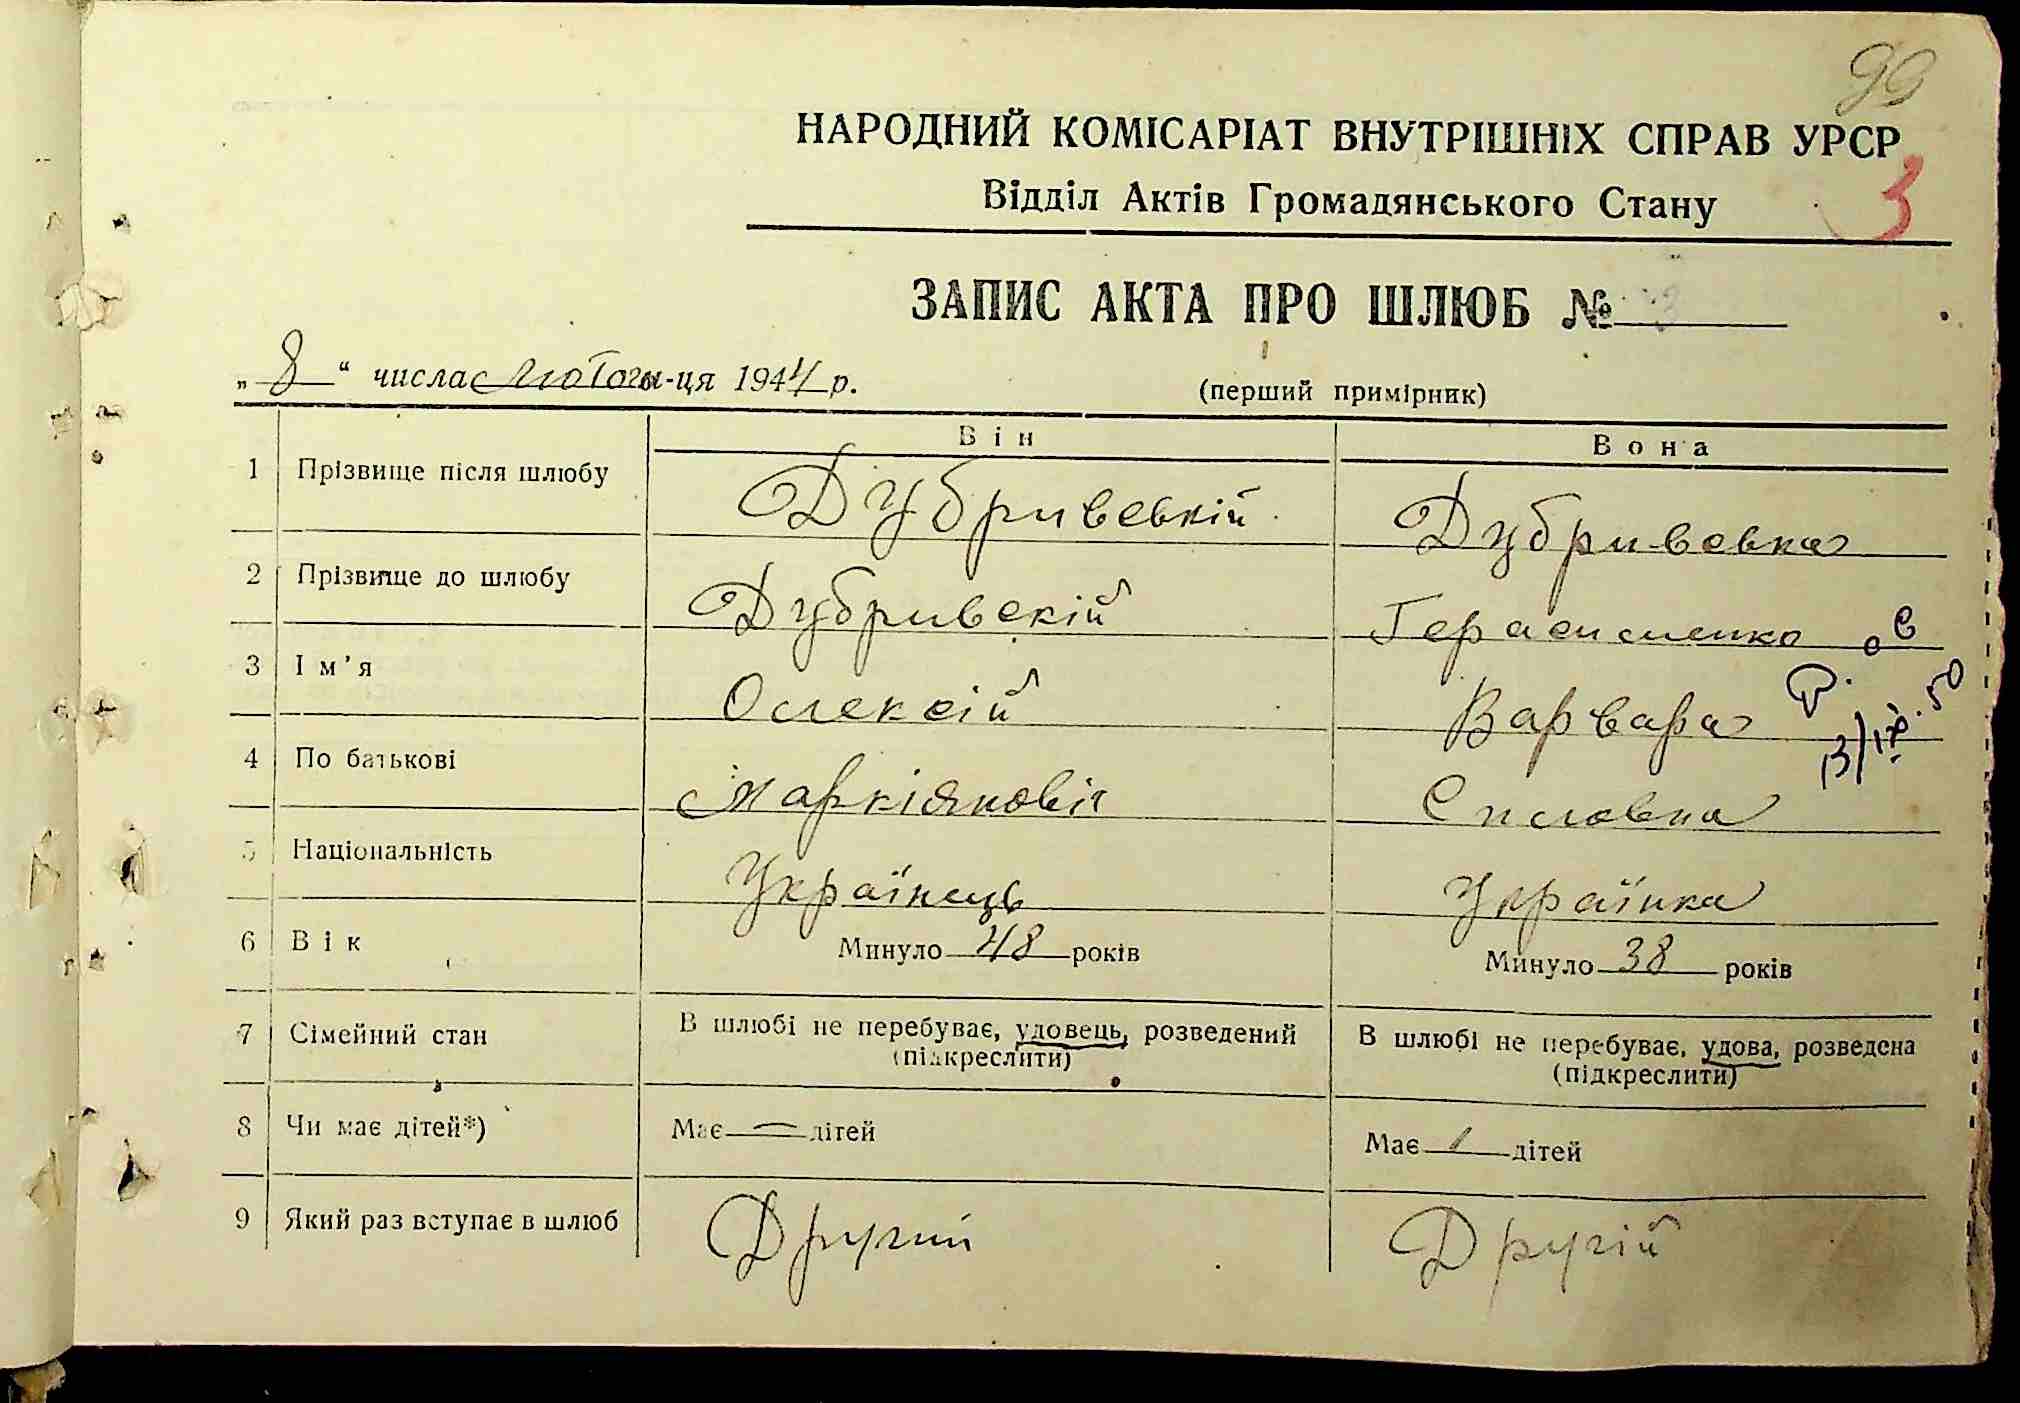 99
НАРОДНИЙ КОМІСАРІАТ ВНУТРІШНІХ СПРАВ УРСР
Відділ Актів Громадянського Стану
3
ЗАПИС АКТА ПРО ШЛЮБ № 3
„ 8 “ числа лютого м-ця 1944 р.
(перший примірник)
Він Вона
1 Прізвище після шлюбу Дубривський Дубривська
2 Прізвище до шлюбу Дубривскій Герасименко
3 Ім’я Олексій Варвара
13/IX.50
4 По батькові Маркіяновіч Силовна
5 Національність Українець Українка
6 Вік Минуло 48 років Минуло 38 років
7 Сімейний стан В шлюбі не перебуває, удовець, розведений В шлюбі не перебуває, удова, розведена
(підкреслити) (підкреслити)
8 Чи має дітей*) Має — дітей Має 1 дітей
9 Який раз вступає в шлюб Другий Другій